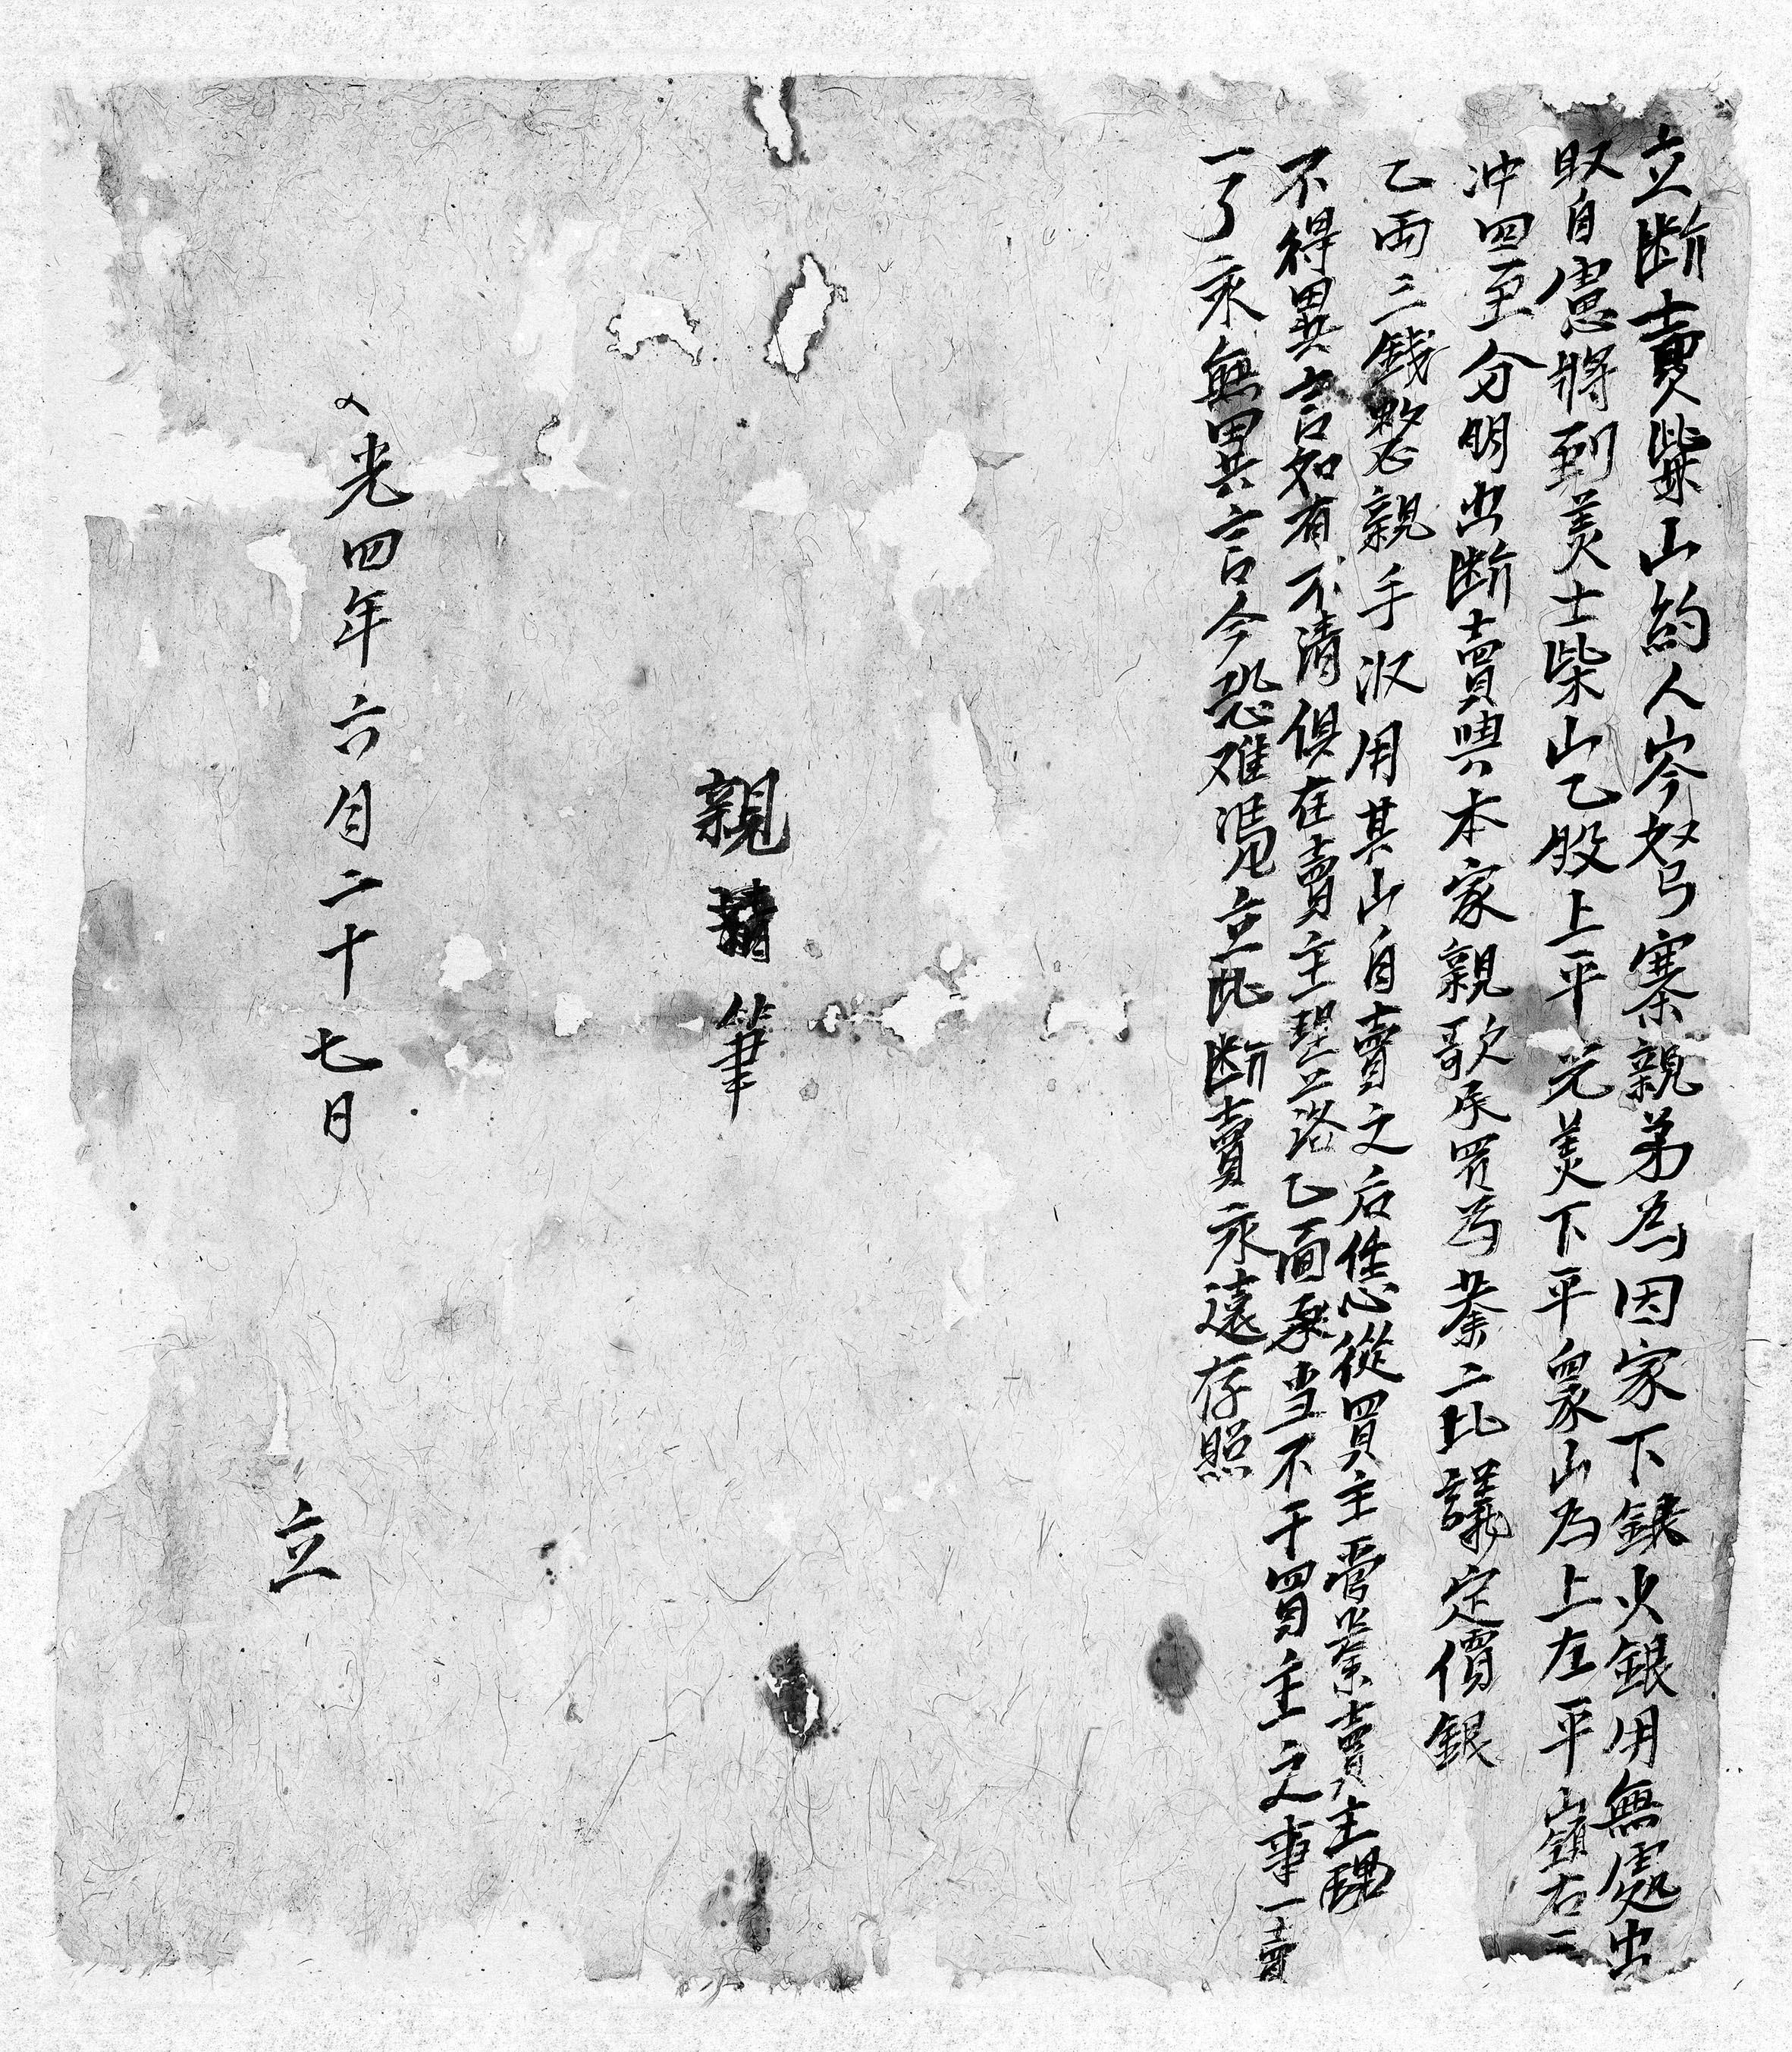 立断賣柴山約人岑努弓寨親弟為因家下缺少銀用無處出
取自愿將到美士柴山乙股上平光美下平衆山為上左平嶺右二
冲四至分明出断賣與本家親歌承買为業二比議定價銀
乙両三錢整親手收用其山自賣之后恁從買主管業賣主
不得異言如有不清俱在賣主理上洛乙面承当不干買主之事一賣
一了永無異言今恐难慿立此断賣永遠存照
親筆
光四年六月二十七日
立